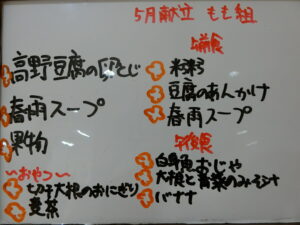 5月献立 もも組
高野豆腐の卵とじ
春雨スープ
果物
～おやつ～
大根のおにぎり
麦茶
午前食
米粥
豆腐のあんかけ
春雨スープ
午後食
白身魚おじや
大根と青菜のみそ汁
バナナ